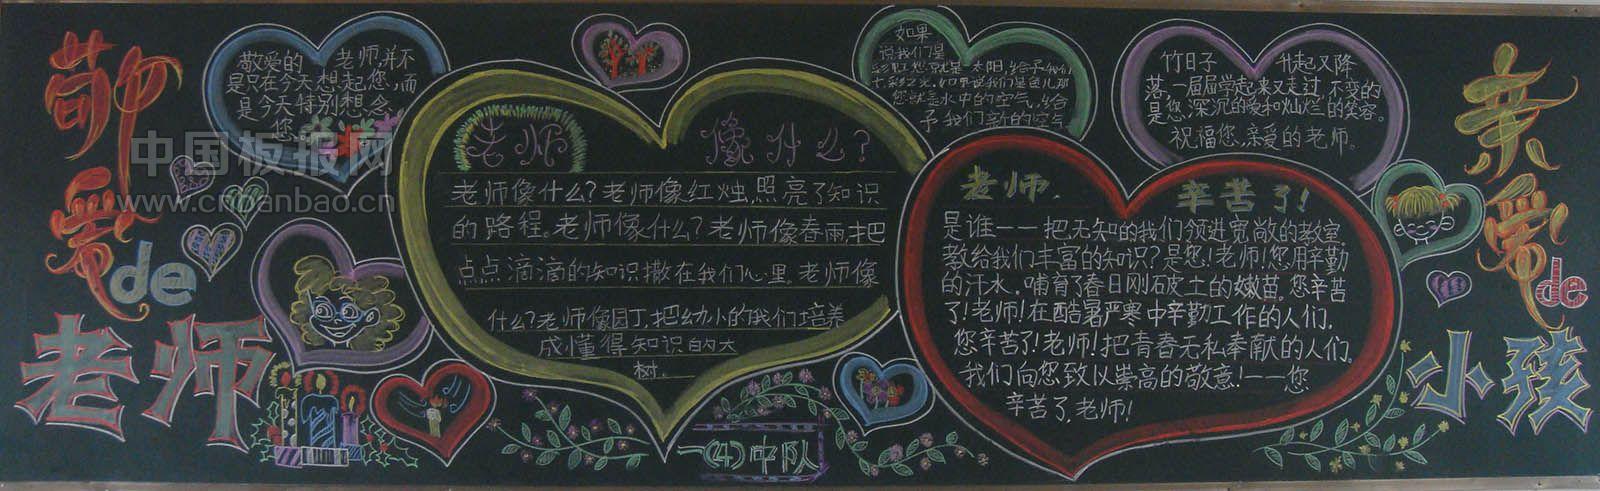 敬爱
de
老师
敬爱的 老师并不
是只在今天想起您,而
是今天特别想念
您。
中国板报网
www.cnbanbao.cn
老师 像什么?
老师像什么?老师像红烛,照亮了知识
的路程。老师像什么?老师像春雨,把
点点滴滴的知识撒在我们心里。老师像
什么?老师像园丁,把幼小的我们培养
成懂得知识的大
树.
一(4)中队
如果
说我们是
您就是太阳,给予我们
您就是水中的空气,给
予我们新的空气
竹日子 升起又降
落,一届届学起来又走过,不变的
是您,深沉的爱和灿烂的笑容。
祝福您,亲爱的老师。
老师. 辛苦了!
是谁——把无知的我们领进宽敞的教室,
教给我们丰富的知识?是您!老师!您用辛勤
的汗水,哺育了春日刚破土的嫩苗。您辛苦
了!老师!在酷暑严寒中辛勤工作的人们,
您辛苦了!老师!把青春无私奉献的人们。
我们向您致以崇高的敬意!——您
辛苦了,老师!
亲爱
de
小孩